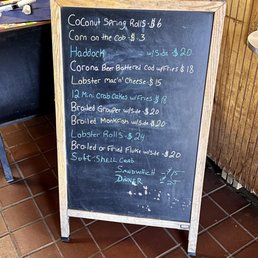 Coconut Spring Rolls - $6
Corn on the Cob - $.3
Haddock w/side - $20
Corona Beer Battered Cod w/Fries $18
Lobster Mac 'n' Cheese - $15
12 Mini Crab Cakes w/Fries $18
Broiled Grouper w/side - $20
Broiled Monkfish w/side - $20
Lobster Rolls - $24
Broiled or Fried Fluke w/side - $20
Soft-Shell Crab
Sandwich - $15
Dinner - $25